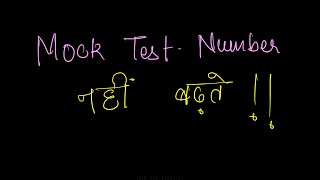 Mock Test. Number
नहीं बढ़ते !!